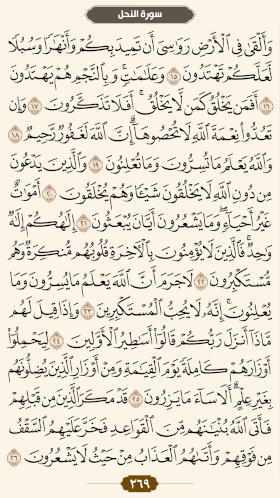 سورة النحل
وَأَلْقَىٰ فِي ٱلْأَرْضِ رَوَٰسِيَ أَن تَمِيدَ بِكُمْ وَأَنْهَٰرًا وَسُبُلًا
لَّعَلَّكُمْ تَهْتَدُونَ ١٥ وَعَلَٰمَٰتٍ ۚ وَبِٱلنَّجْمِ هُمْ يَهْتَدُونَ
١٦ أَفَمَن يَخْلُقُ كَمَن لَّا يَخْلُقُ ۗ أَفَلَا تَذَكَّرُونَ ١٧ وَإِن
تَعُدُّوا۟ نِعْمَةَ ٱللَّهِ لَا تُحْصُوهَآ ۗ إِنَّ ٱللَّهَ لَغَفُورٌ رَّحِيمٌ ١٨
وَٱللَّهُ يَعْلَمُ مَا تُسِرُّونَ وَمَا تُعْلِنُونَ ١٩ وَٱلَّذِينَ يَدْعُونَ
مِن دُونِ ٱللَّهِ لَا يَخْلُقُونَ شَيْـًٔا وَهُمْ يُخْلَقُونَ ٢٠ أَمْوَٰتٌ
غَيْرُ أَحْيَآءٍ ۖ وَمَا يَشْعُرُونَ أَيَّانَ يُبْعَثُونَ ٢١ إِلَٰهُكُمْ إِلَٰهٌ
وَٰحِدٌ ۚ فَٱلَّذِينَ لَا يُؤْمِنُونَ بِٱلْـَٔاخِرَةِ قُلُوبُهُم مُّنكِرَةٌ وَهُم
مُّسْتَكْبِرُونَ ٢٢ لَا جَرَمَ أَنَّ ٱللَّهَ يَعْلَمُ مَا يُسِرُّونَ وَمَا
يُعْلِنُونَ ۚ إِنَّهُۥ لَا يُحِبُّ ٱلْمُسْتَكْبِرِينَ ٢٣ وَإِذَا قِيلَ لَهُم
مَّاذَآ أَنزَلَ رَبُّكُمْ ۙ قَالُوٓا۟ أَسَٰطِيرُ ٱلْأَوَّلِينَ ٢٤ لِيَحْمِلُوٓا۟
أَوْزَارَهُمْ كَامِلَةً يَوْمَ ٱلْقِيَٰمَةِ ۙ وَمِنْ أَوْزَارِ ٱلَّذِينَ يُضِلُّونَهُم
بِغَيْرِ عِلْمٍ ۗ أَلَا سَآءَ مَا يَزِرُونَ ٢٥ قَدْ مَكَرَ ٱلَّذِينَ مِن قَبْلِهِمْ
فَأَتَى ٱللَّهُ بُنْيَٰنَهُم مِّنَ ٱلْقَوَاعِدِ فَخَرَّ عَلَيْهِمُ ٱلسَّقْفُ
مِن فَوْقِهِمْ وَأَتَىٰهُمُ ٱلْعَذَابُ مِنْ حَيْثُ لَا يَشْعُرُونَ ٢٦
٢٦٩